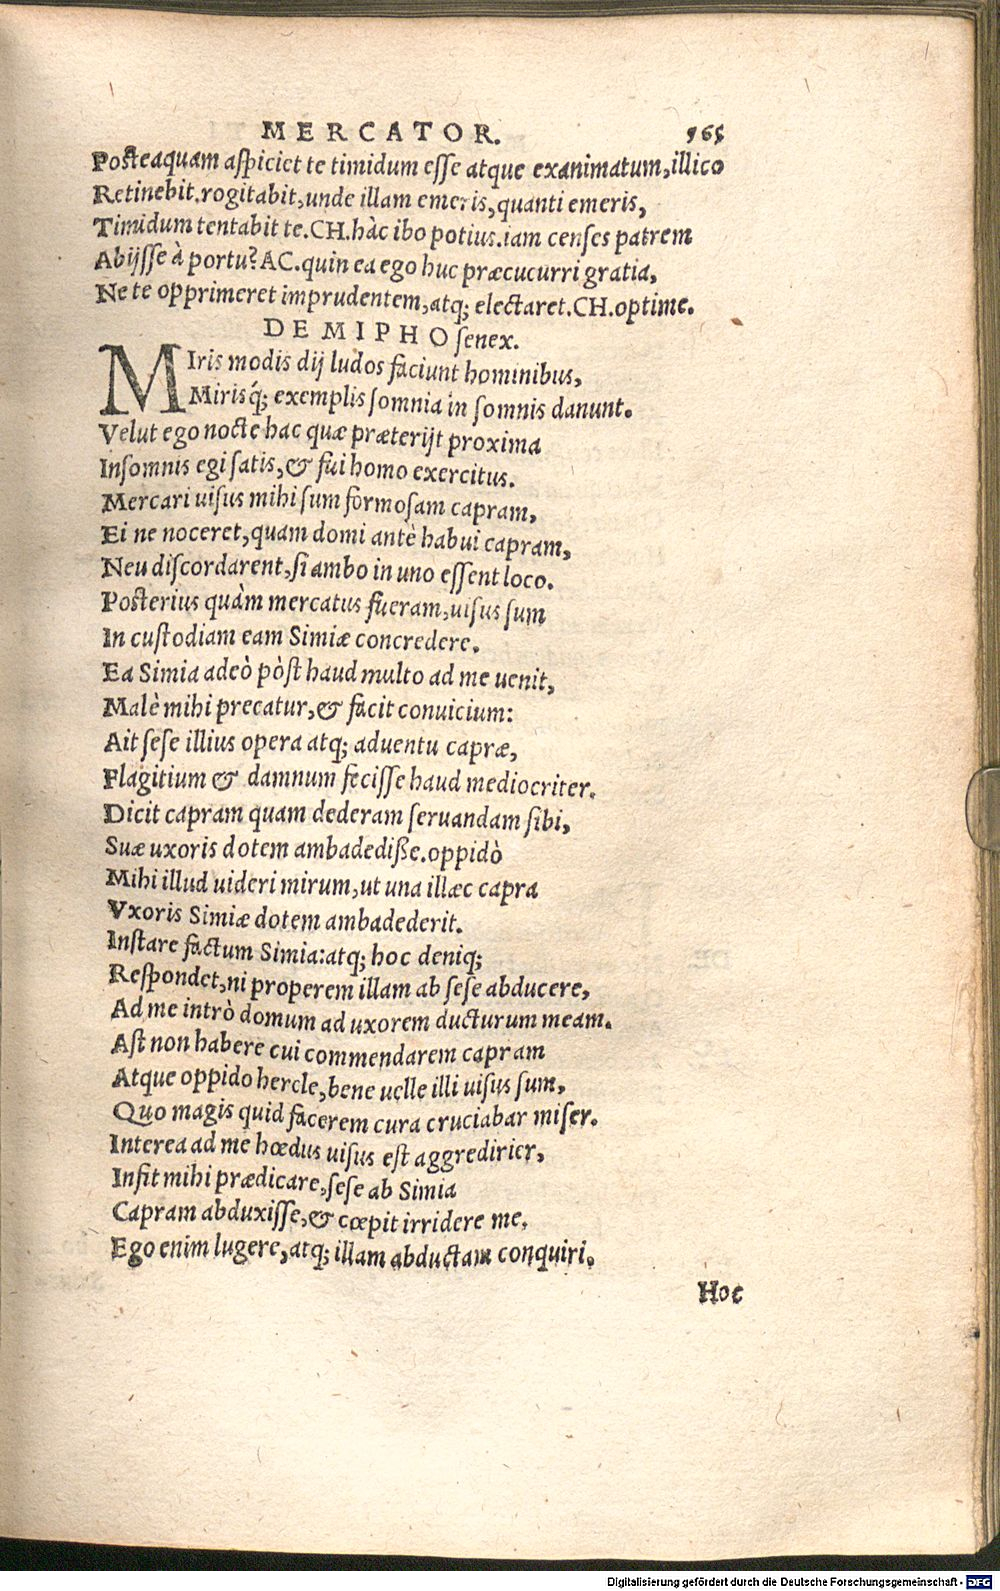 MERCATOR. 965
Posteaquam aspiciet te timidum esse atque exanimatum, illico
Retinebit. rogitabit, unde illam emeris, quanti emeris,
Timidum tentabit te. CH. hàc ibo potius. iam censes patrem
Abijsse à portu? AC. quin ea ego huc præcucurri gratia,
Ne te opprimeret imprudentem, atq; electaret. CH. optime.
DEMIPHO senex.
MIris modis dij ludos faciunt hominibus,
Mirisq́; exemplis somnia in somnis danunt.
Velut ego nocte hac quæ præterijt proxima
Insomnis egi satis, & fui homo exercitus.
Mercari uisus mihi sum formosam capram,
Ei ne noceret, quam domi antè habui capram,
Neu discordarent, si ambo in uno essent loco.
Posterius quàm mercatus fueram, uisus sum
In custodiam eam Simiæ concredere.
Ea Simia adeò pòst haud multo ad me uenit,
Malè mihi precatur, & facit conuicium:
Ait sese illius opera atq; aduentu capræ,
Flagitium & damnum fecisse haud mediocriter.
Dicit capram quam dederam seruandam sibi,
Suæ uxoris dotem ambadedisse. oppidò
Mihi illud uideri mirum, ut una illæc capra
Vxoris Simiæ dotem ambadederit.
Instare factum Simia: atq; hoc deniq;
Respondet, ni properem illam ab sese abducere,
Ad me intrò domum ad uxorem ducturum meam.
Ast non habere cui commendarem capram
Atque oppido hercle, bene uelle illi uisus sum,
Quo magis quid facerem cura cruciabar miser.
Interea ad me hœdus uisus est aggredirier,
Infit mihi prædicare, sese ab Simia
Capram abduxisse, & cœpit irridere me.
Ego enim lugere, atq; illam abductam conquiri.
Hoc
Digitalisierung gefördert durch die Deutsche Forschungsgemeinschaft - DFG